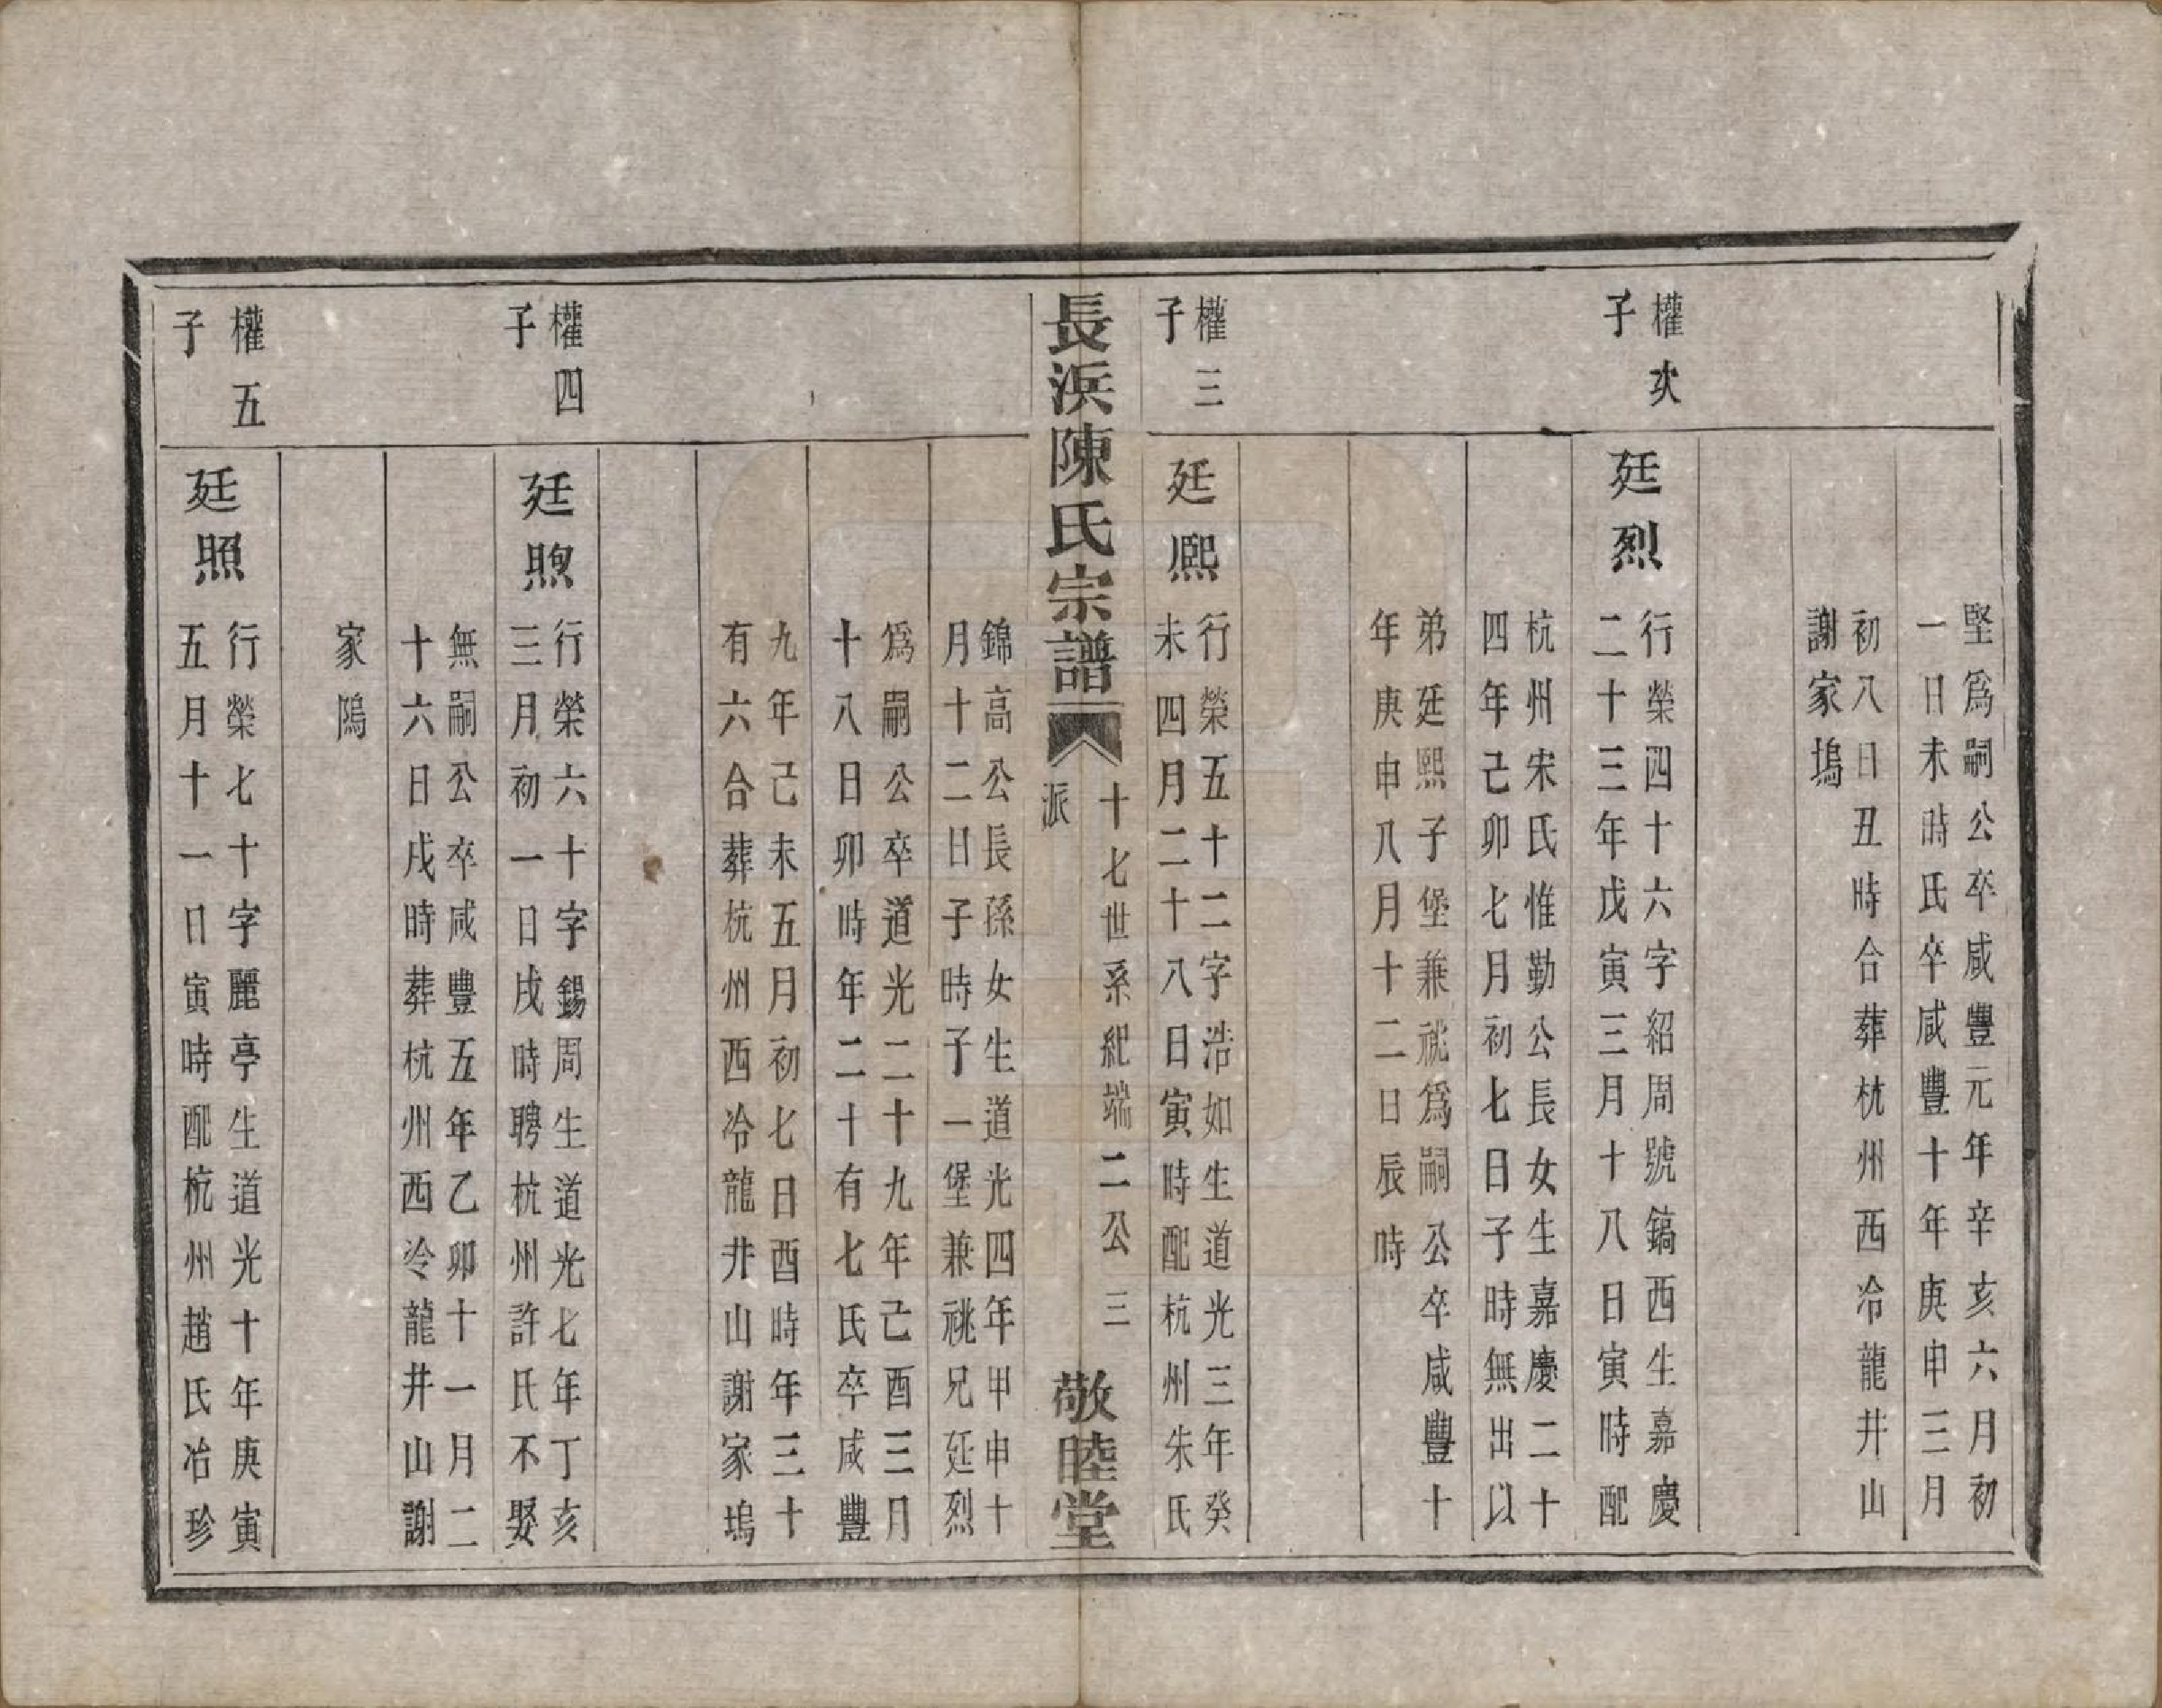 堅爲嗣公卒咸豐元年辛亥六月初
一日未時氏卒咸豐十年庚申三月
初八日丑時合葬杭州西冷龍井山
謝家塢
權次
子
廷烈
行榮四十六字紹周號鎬西生嘉慶
二十三年戊寅三月十八日寅時配
杭州宋氏惟勤公長女生嘉慶二十
四年己卯七月初七日子時無出以
弟廷熙子堡兼祧爲嗣公卒咸豐十
年庚申八月十二日辰時
權三
子
廷熙
行榮五十二字浩如生道光三年癸
未四月二十八日寅時配杭州朱氏
長浜陳氏宗譜
十七世系紀端二公
派
三
敬睦堂
錦高公長孫女生道光四年甲申十
月十二日子時子一堡兼祧兄廷烈
爲嗣公卒道光二十九年己酉三月
十八日卯時年二十有七氏卒咸豐
九年己未五月初七日酉時年三十
有六合葬杭州西冷龍井山謝家塢
權四
子
廷煦
行榮六十字錫周生道光七年丁亥
三月初一日戌時聘杭州許氏不娶
無嗣公卒咸豐五年乙卯十一月二
十六日戌時葬杭州西冷龍井山謝
家隖
權五
子
廷照
行榮七十字麗亭生道光十年庚寅
五月十一日寅時配杭州趙氏冶珍